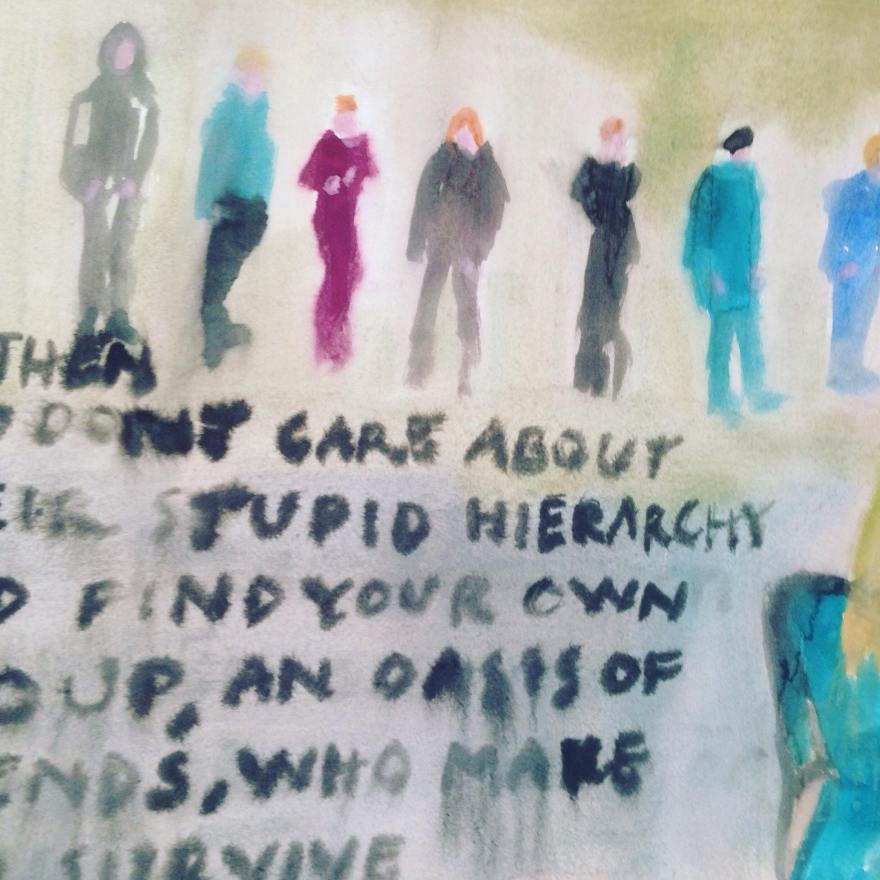 THEN
DONT CARE ABOUT
STUPID HIERARCHY
FIND YOUR OWN
OUP, AN OASIS OF
ENDS, WHO MAKE
SURVIVE